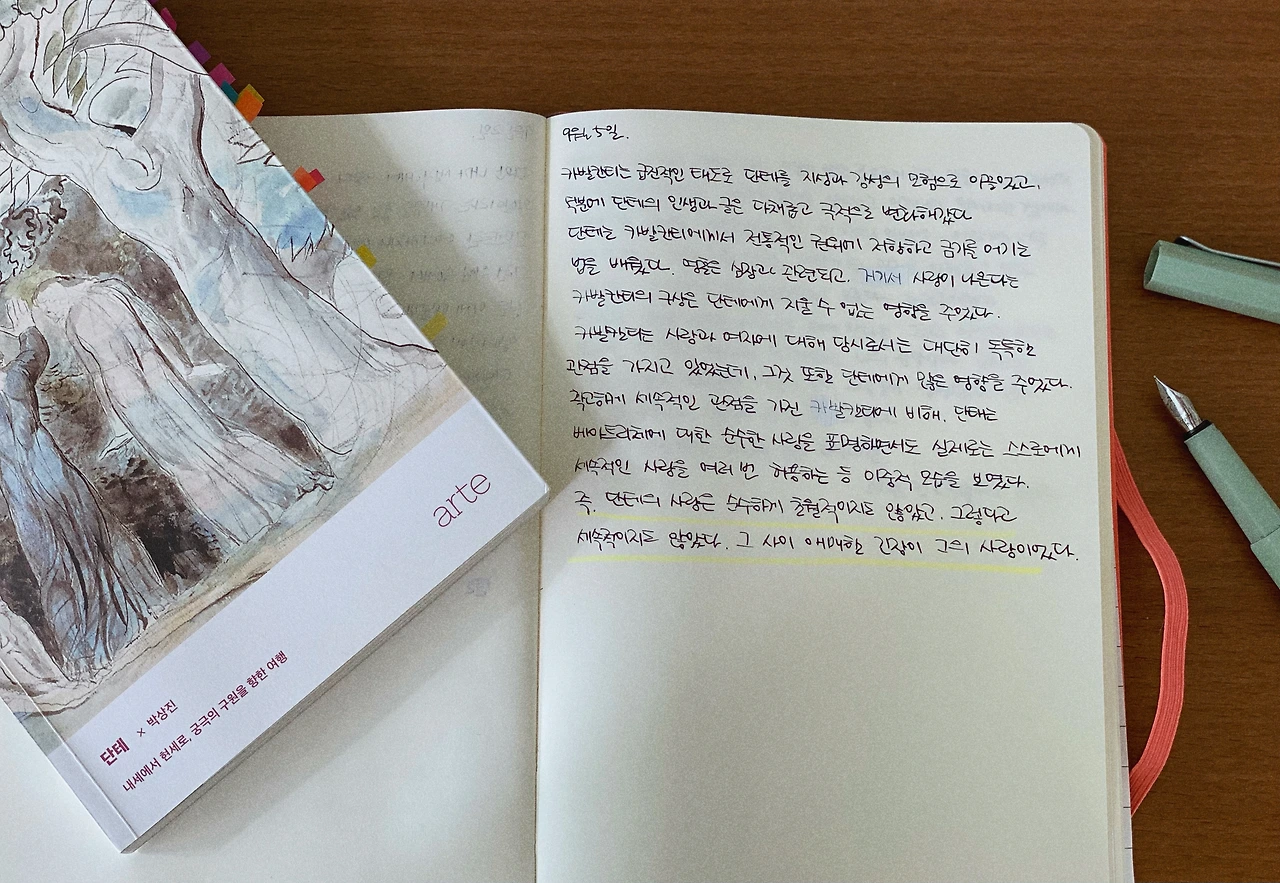 arte
단테 × 박상진
내세에서 현세로, 궁극의 구원을 향한 여행
9월 5일.
카발칸티는 급진적인 태도로 단테를 지성과 감성의 모험으로 이끌었고,
덕분에 단테의 인생과 글은 다채롭고 극적으로 변화해갔다
단테는 카발칸티에게서 전통적인 권위에 저항하고 금기를 어기는
법을 배웠다. 명풍은 심장과 관련되고, 거기서 사랑이 나온다는
카발칸티의 구상은 단테에게 지울 수 없는 영향을 주었다.
카발칸티는 사랑과 여자에 대해 당시로서는 대단히 독특한
관점을 가지고 있었는데, 그것 또한 단테에게 많은 영향을 주었다.
확고하게 세속적인 관점을 가진 카발칸티에 비해, 단테는
베아트리체에 대한 순수한 사랑을 표명하면서도 실제로는 스스로에게
세속적인 사랑을 여러 번 허용하는 등 이중적 모습을 보였다.
즉, 단테의 사랑은 순수하게 초월적이지도 않았고, 그렇다고
세속적이지도 않았다. 그 사이 애매한 긴장이 그의 사랑이었다.